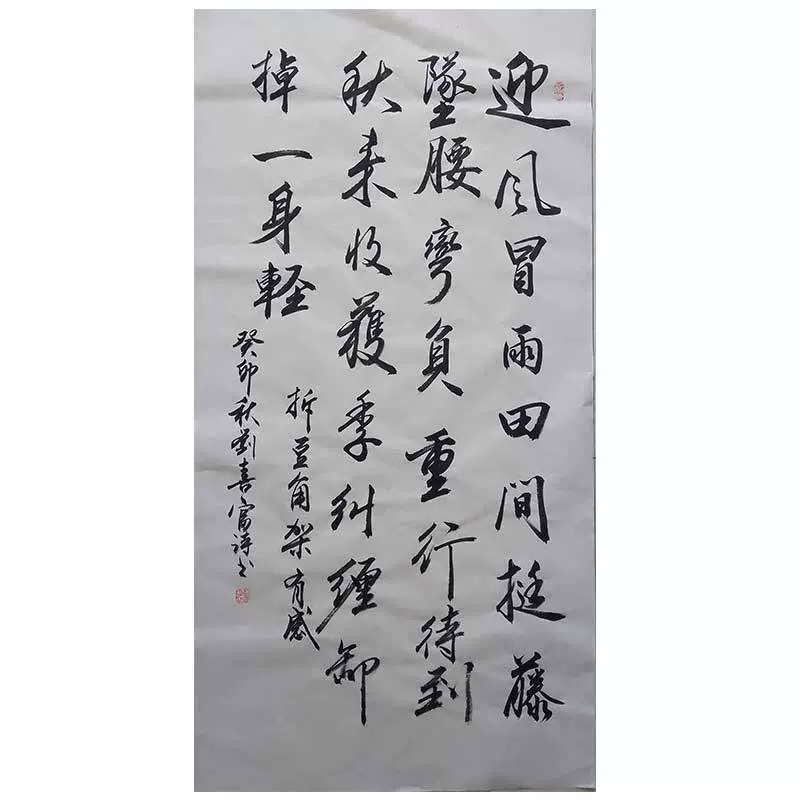 迎风冒雨田间挺藤
墜腰彎負重行待到
秋来收獲季糾纏卸
掉一身軽
拆豆角架有感
癸卯秋劉喜富诗书